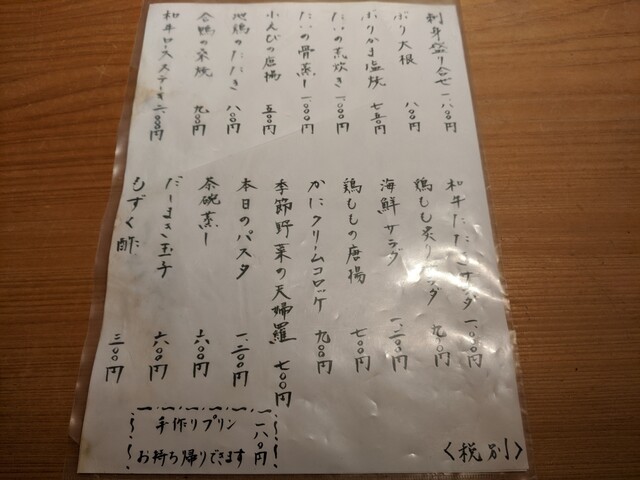 刺身盛り合せ 一、八〇〇円
ぶり大根 八〇〇円
ぶりかま塩焼 七五〇円
たいの荒炊き 一、〇〇〇円
たいの骨蒸し 一、〇〇〇円
小えびの唐揚 五〇〇円
地鶏のたたき 八〇〇円
合鴨の柔焼 九〇〇円
和牛ロースステーキ 二、〇〇〇円
和牛たたきサラダ 一、〇〇〇円
鶏もも炙りサラダ 九〇〇円
海鮮サラダ 一、二〇〇円
鶏ももの唐揚 七〇〇円
かにクリームコロッケ 九〇〇円
季節野菜の天婦羅 七〇〇円
本日のパスタ 一、二〇〇円
茶碗蒸し 六〇〇円
だしまき玉子 六〇〇円
もずく酢 三〇〇円
手作りプリン 一八〇円
お持ち帰りできます
〈税別〉